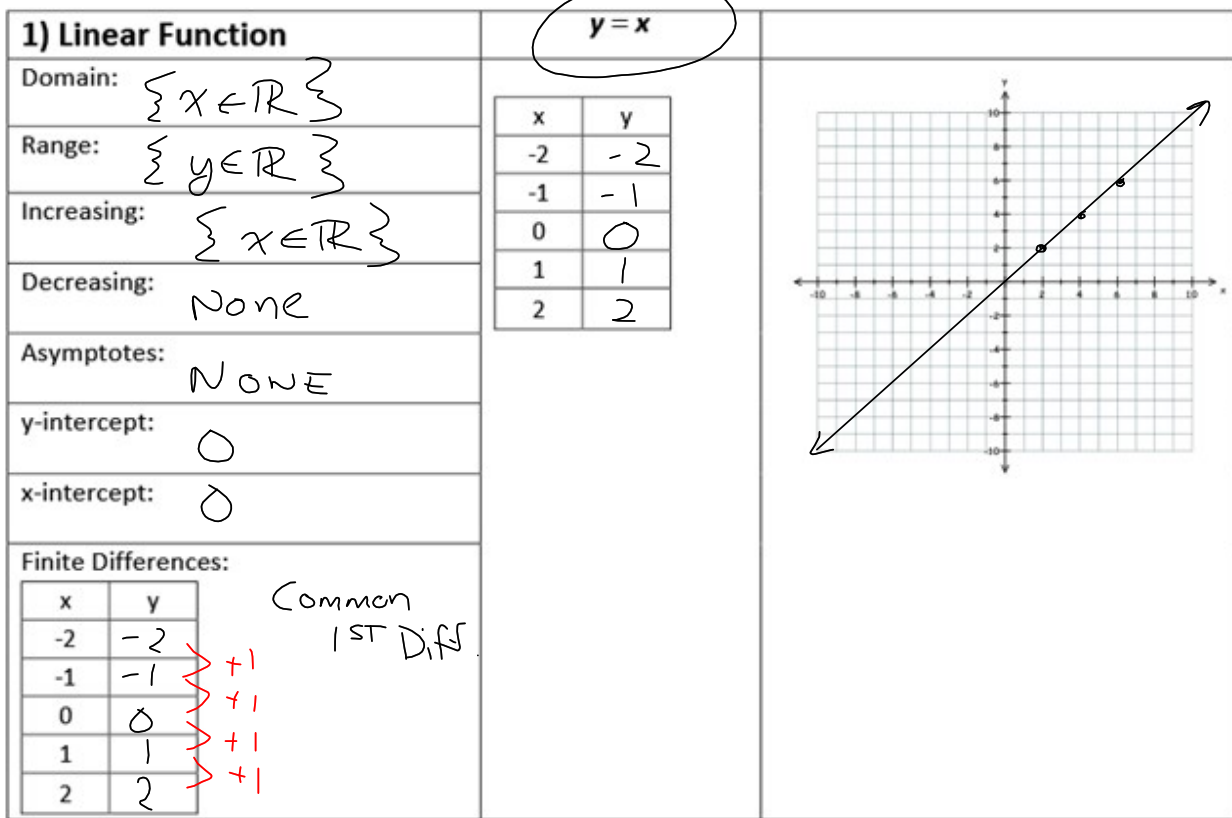 1) Linear Function
y = x
Domain: { x ∈ ℝ }
Range: { y ∈ ℝ }
Increasing: { x ∈ ℝ }
Decreasing: None
Asymptotes: NONE
y-intercept: 0
x-intercept: 0
Finite Differences:
x y
-2 -2
-1 -1
0 0
1 1
2 2
+1
+1
+1
+1
Common
1ST Diff.
x y
-2 -2
-1 -1
0 0
1 1
2 2
Y
10
8
6
4
2
-10 -8 -6 -4 -2 2 4 6 8 10 x
-2
-4
-6
-8
-10